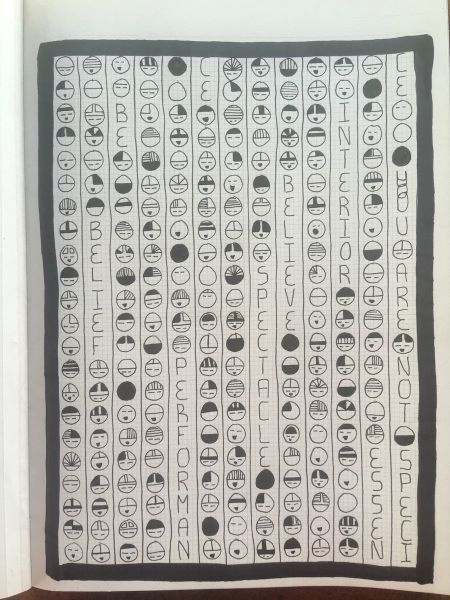 BELIEF
BE
PERFORMAN
CE
SPECTACLE
BELIEVE
INTERIOR
ESSEN
CE YOU ARE NOT SPECI